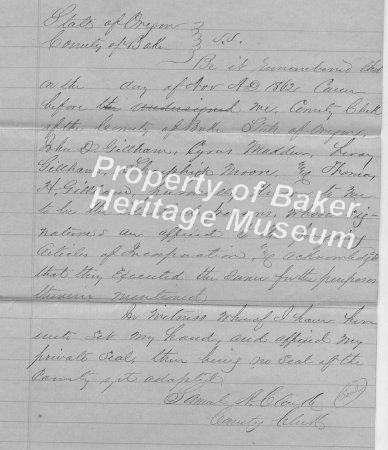 State of Oregon }
County of Baker } S.S.
Be it remembered that
on the day of Nov A.D. 1862 Came
before the undersigned me, County Clerk
of the County of Baker State of Oregon,
John D. Gillham, Cyrus
Gillham, Moore, &
H. Gillham
to be the
natures are affixed to the
Articles of Incorporation, & acknowledged
that they executed the same for the purposes
therein mentioned
In Witness Whereof I have here
unto set my hand, and affixed my
private seal, there being no seal of the
County yet adopted
County Clerk
Property of Baker
Heritage Museum